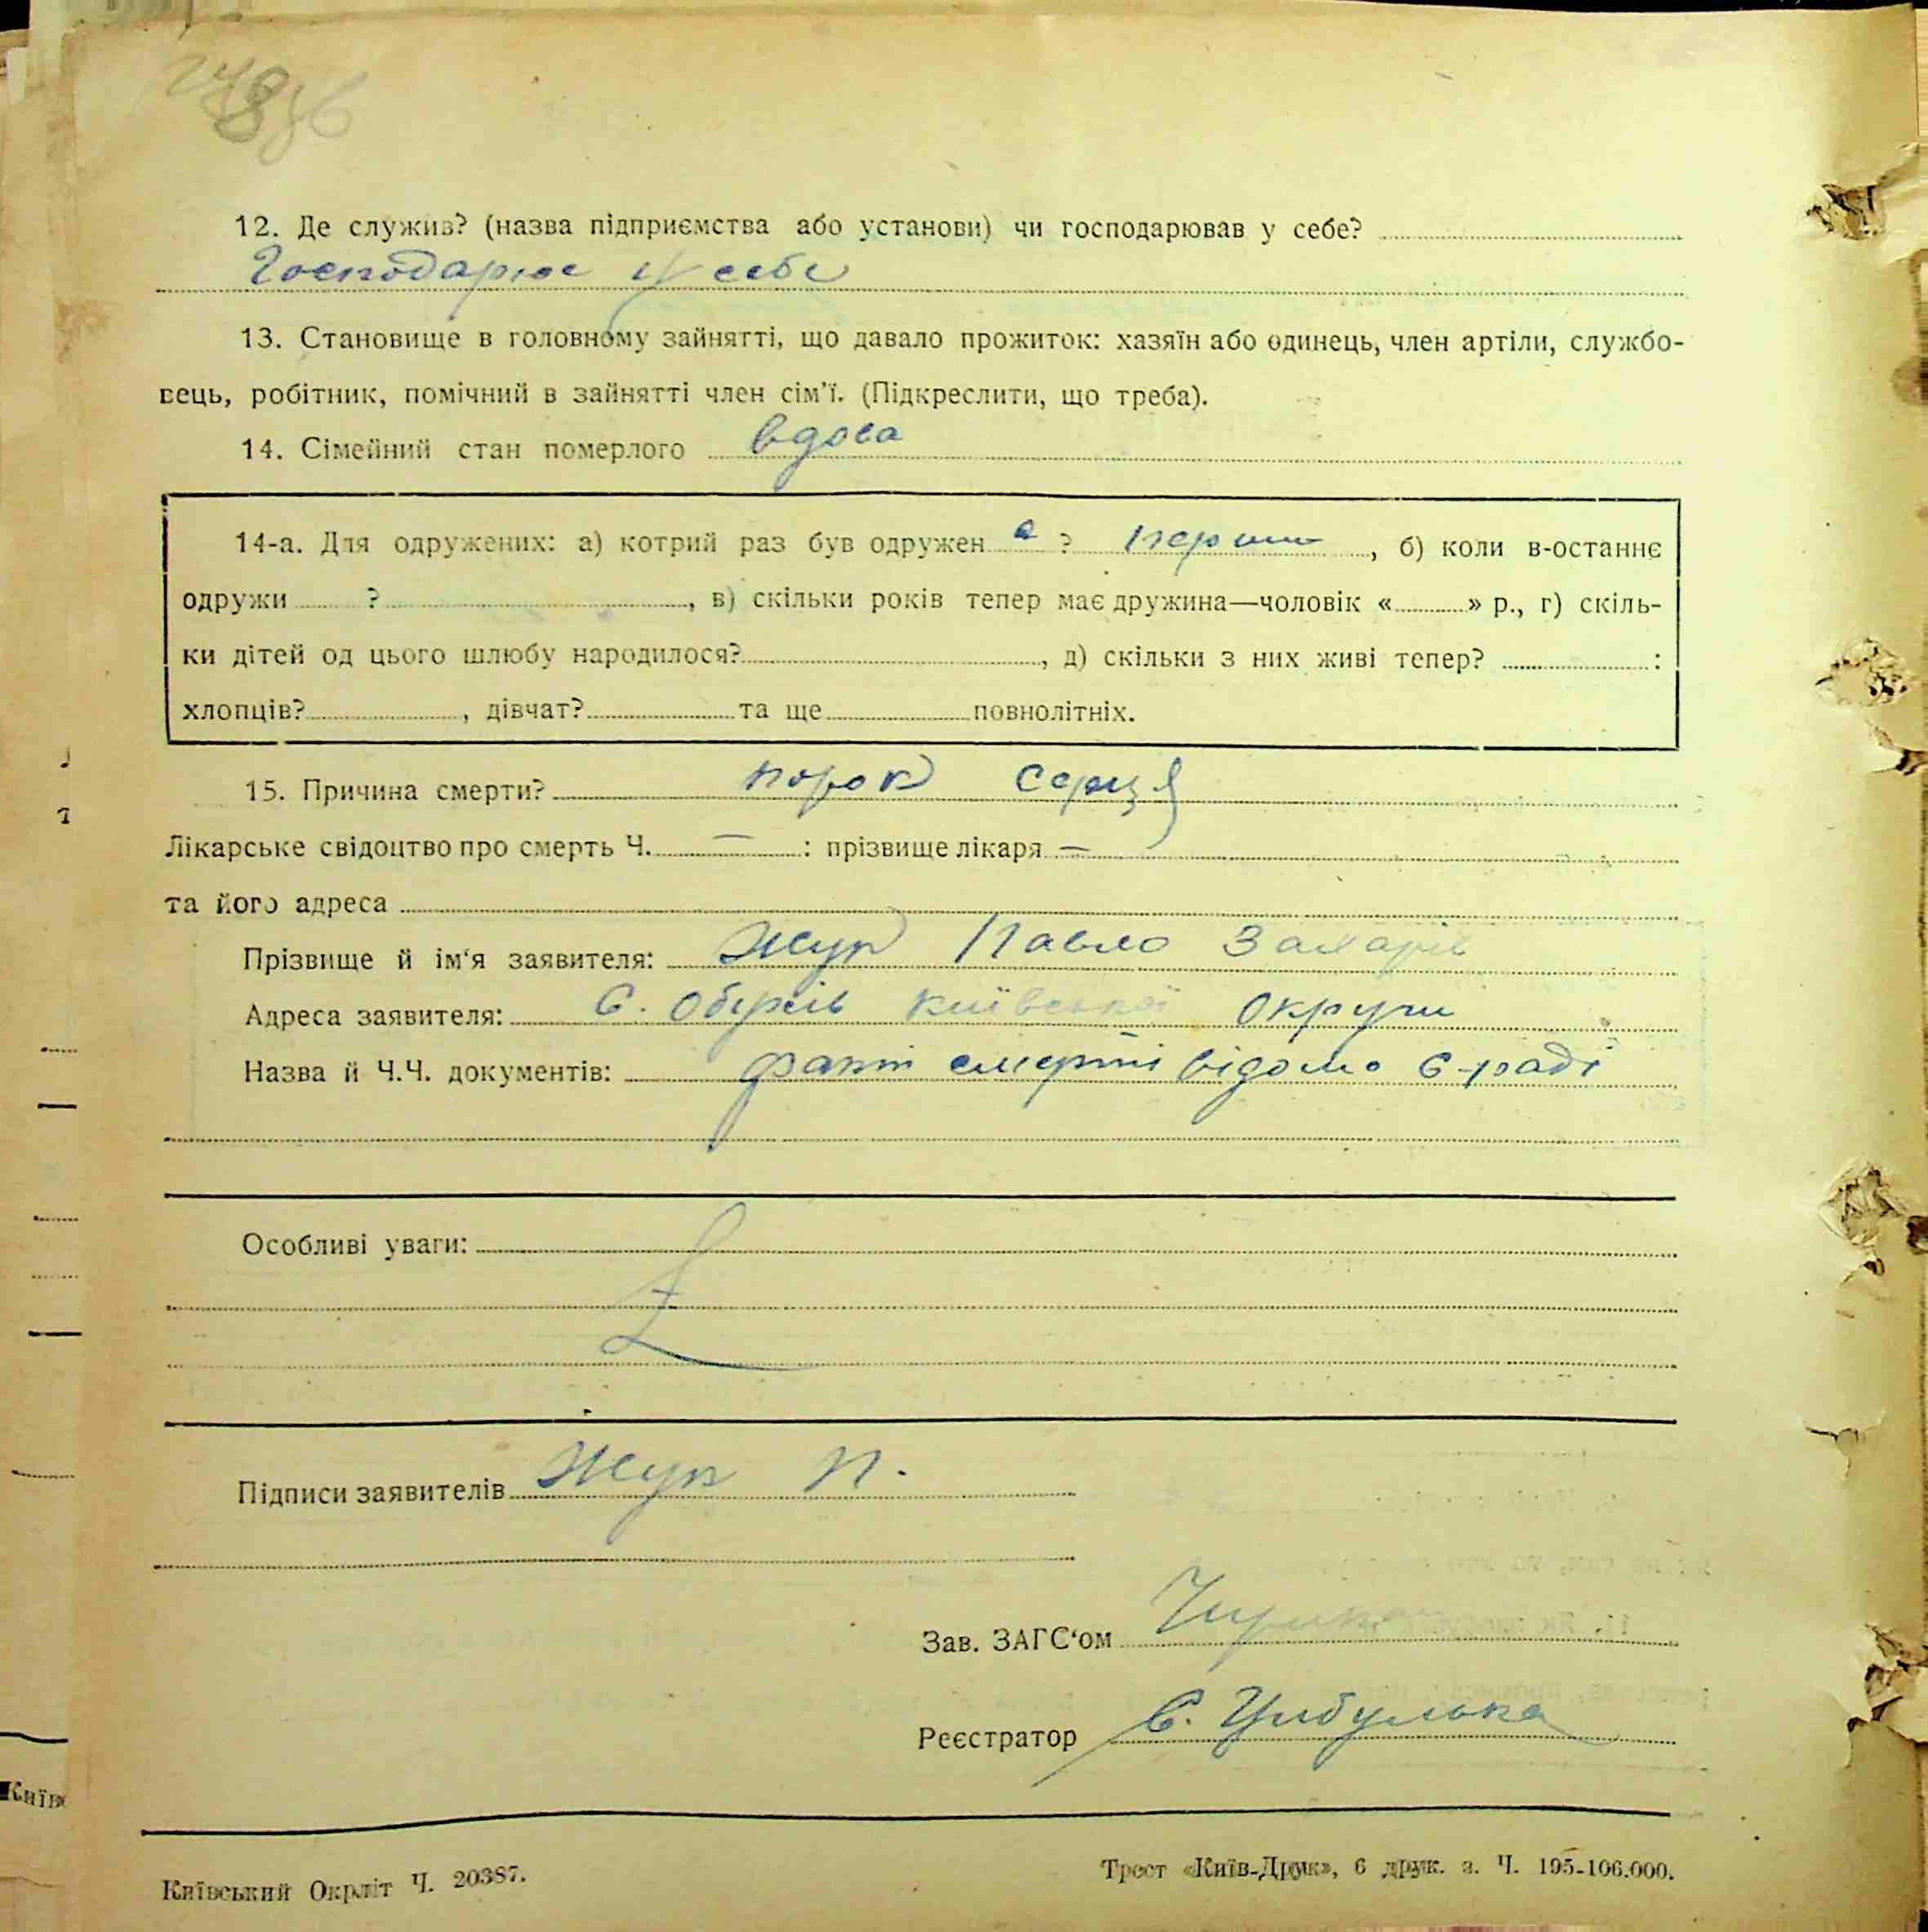 12. Де служив? (назва підприємства або установи) чи господарював у себе?
Господарює у себе
13. Становище в головному зайнятті, що давало прожиток: хазяїн або одинець, член артіли, службо-
вець, робітник, помічний в зайнятті член сім'ї. (Підкреслити, що треба).
14. Сімейний стан померлого вдова
14-а. Для одружених: а) котрий раз був одружен а ? перший, б) коли в-останнє
одружи ?, в) скільки років тепер має дружина—чоловік « » р., г) скіль-
ки дітей од цього шлюбу народилося?, д) скільки з них живі тепер? :
хлопців?, дівчат? та ще повнолітніх.
15. Причина смерти? порок серця
Лікарське свідоцтво про смерть Ч. — : прізвище лікаря —
та його адреса
Прізвище й ім'я заявителя: Жук Павло Захарів
Адреса заявителя: С. Київської Округи
Назва й Ч.Ч. документів: факт смерті відомо с-раді
Особливі уваги:
Підписи заявителів Жук П.
Зав. ЗАГС'ом
Реєстратор Є. Цибулька
Київський Окрліт Ч. 20387.
Трест «Київ-Друк», 6 друк. з. Ч. 195-106.000.
Київ